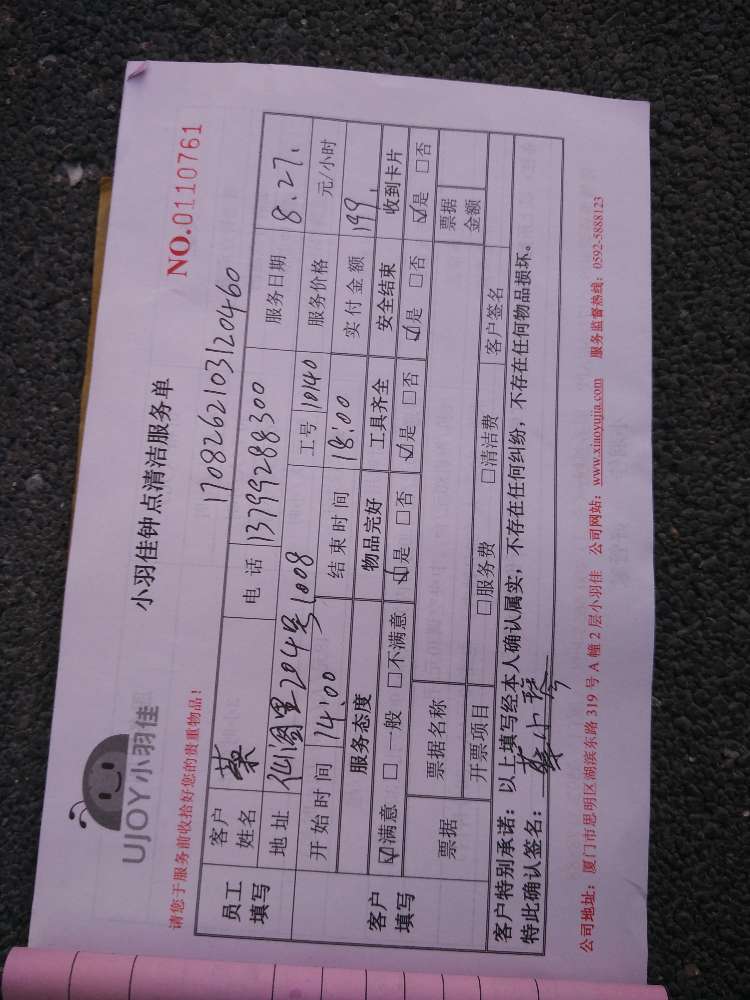 UJOY小羽佳
小羽佳钟点清洁服务单
请您于服务前收拾好您的贵重物品！
NO.0110761
1708262103120460
员工填写 客户姓名 蔡 电话 13799288300 服务日期 8.27.
地址 仙阁里204号1008 工号 10140 服务价格 元/小时
客户填写 开始时间 14:00 结束时间 18:00 实付金额 149.
服务态度 物品完好 工具齐全 安全结束 收到卡片
☑满意 □一般 □不满意 ☑是 □否 ☑是 □否 ☑是 □否 ☑是 □否
票据 票据名称 票据金额
开票项目 □服务费 □清洁费 客户签名
客户特别承诺：以上填写经本人确认属实，不存在任何纠纷，不存在任何物品损坏。
特此确认签名：蔡小
公司地址：厦门市思明区湖滨东路319号A幢2层小羽佳 公司网站：www.xiaoyujia.com 服务监督热线：0592-5888123